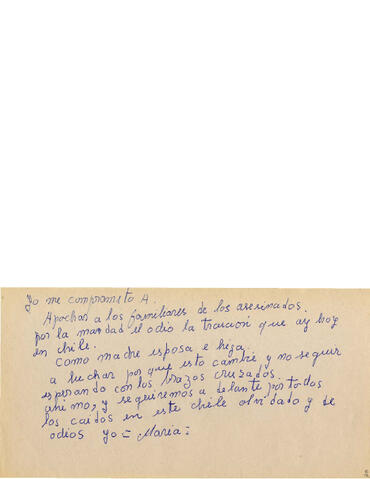 Yo me comprometo A.
Apochar a los familiares de los asesinados.
por la mardad el odio la traición que ay hoy
en chile.
Como madre esposa e hija.
a luchar por que esto cambie y no seguir
esperando con los brazos cruzados.
ahimo, y seguiremos a delante por todos
los caidos en este chile olvidado y de
odios yo = Maria =